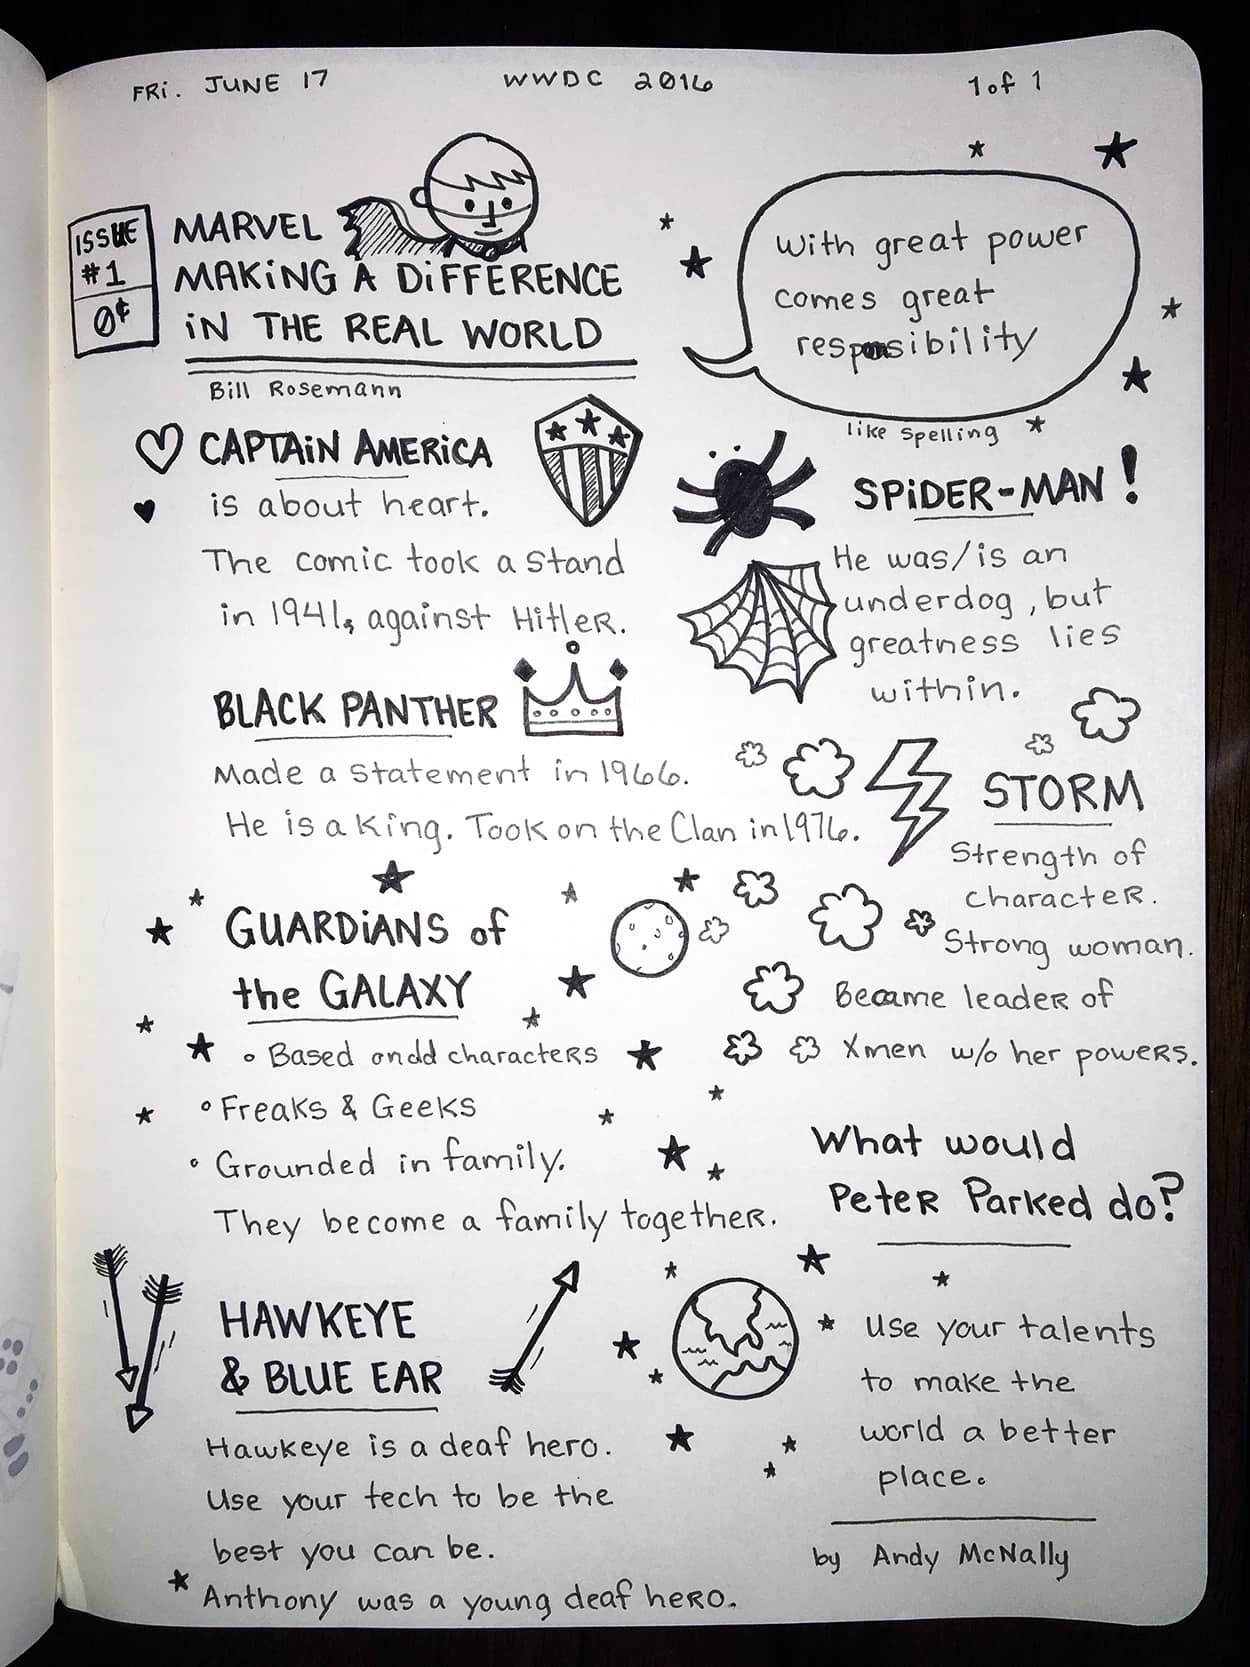 FRi. JUNE 17 WWDC 2016 1 of 1
ISSUE
#1
0¢
MARVEL
MAKiNG A DiFFERENCE
iN THE REAL WORLD
Bill Rosemann
With great power
comes great
responsibility
like spelling
CAPTAiN AMERiCA
is about heart.
The comic took a stand
in 1941, against HitleR.
SPiDER-MAN!
He was/is an
underdog, but
greatness lies
within.
BLACK PANTHER
Made a statement in 1966.
He is a king. Took on the Clan in 1976.
STORM
Strength of
characteR.
Strong woman.
Became leadeR of
Xmen w/o her poweRs.
GUARDiANS of
the GALAXY
Based on odd characteRs
Freaks & Geeks
Grounded in family.
They become a family togetheR.
What would
PeteR Parked do?
HAWKEYE
& BLUE EAR
Hawkeye is a deaf hero.
Use your tech to be the
best you can be.
Anthony was a young deaf heRo.
Use your talents
to make the
world a better
place.
by Andy McNally